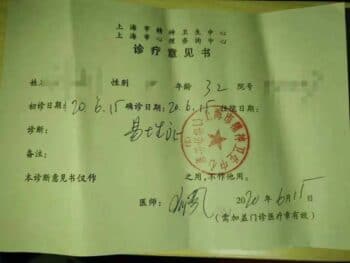 上海市精神卫生中心
上海市心理咨询中心
诊疗意见书
姓 性别 年龄 32 院号
初诊日期: 20.6.15 确诊日期: 20.6.15 住院日期:
诊断:
备注:
本诊断意见书仅作 之用,不作他用。
医师: 2020年6月15日
(需加盖门诊医疗章有效)